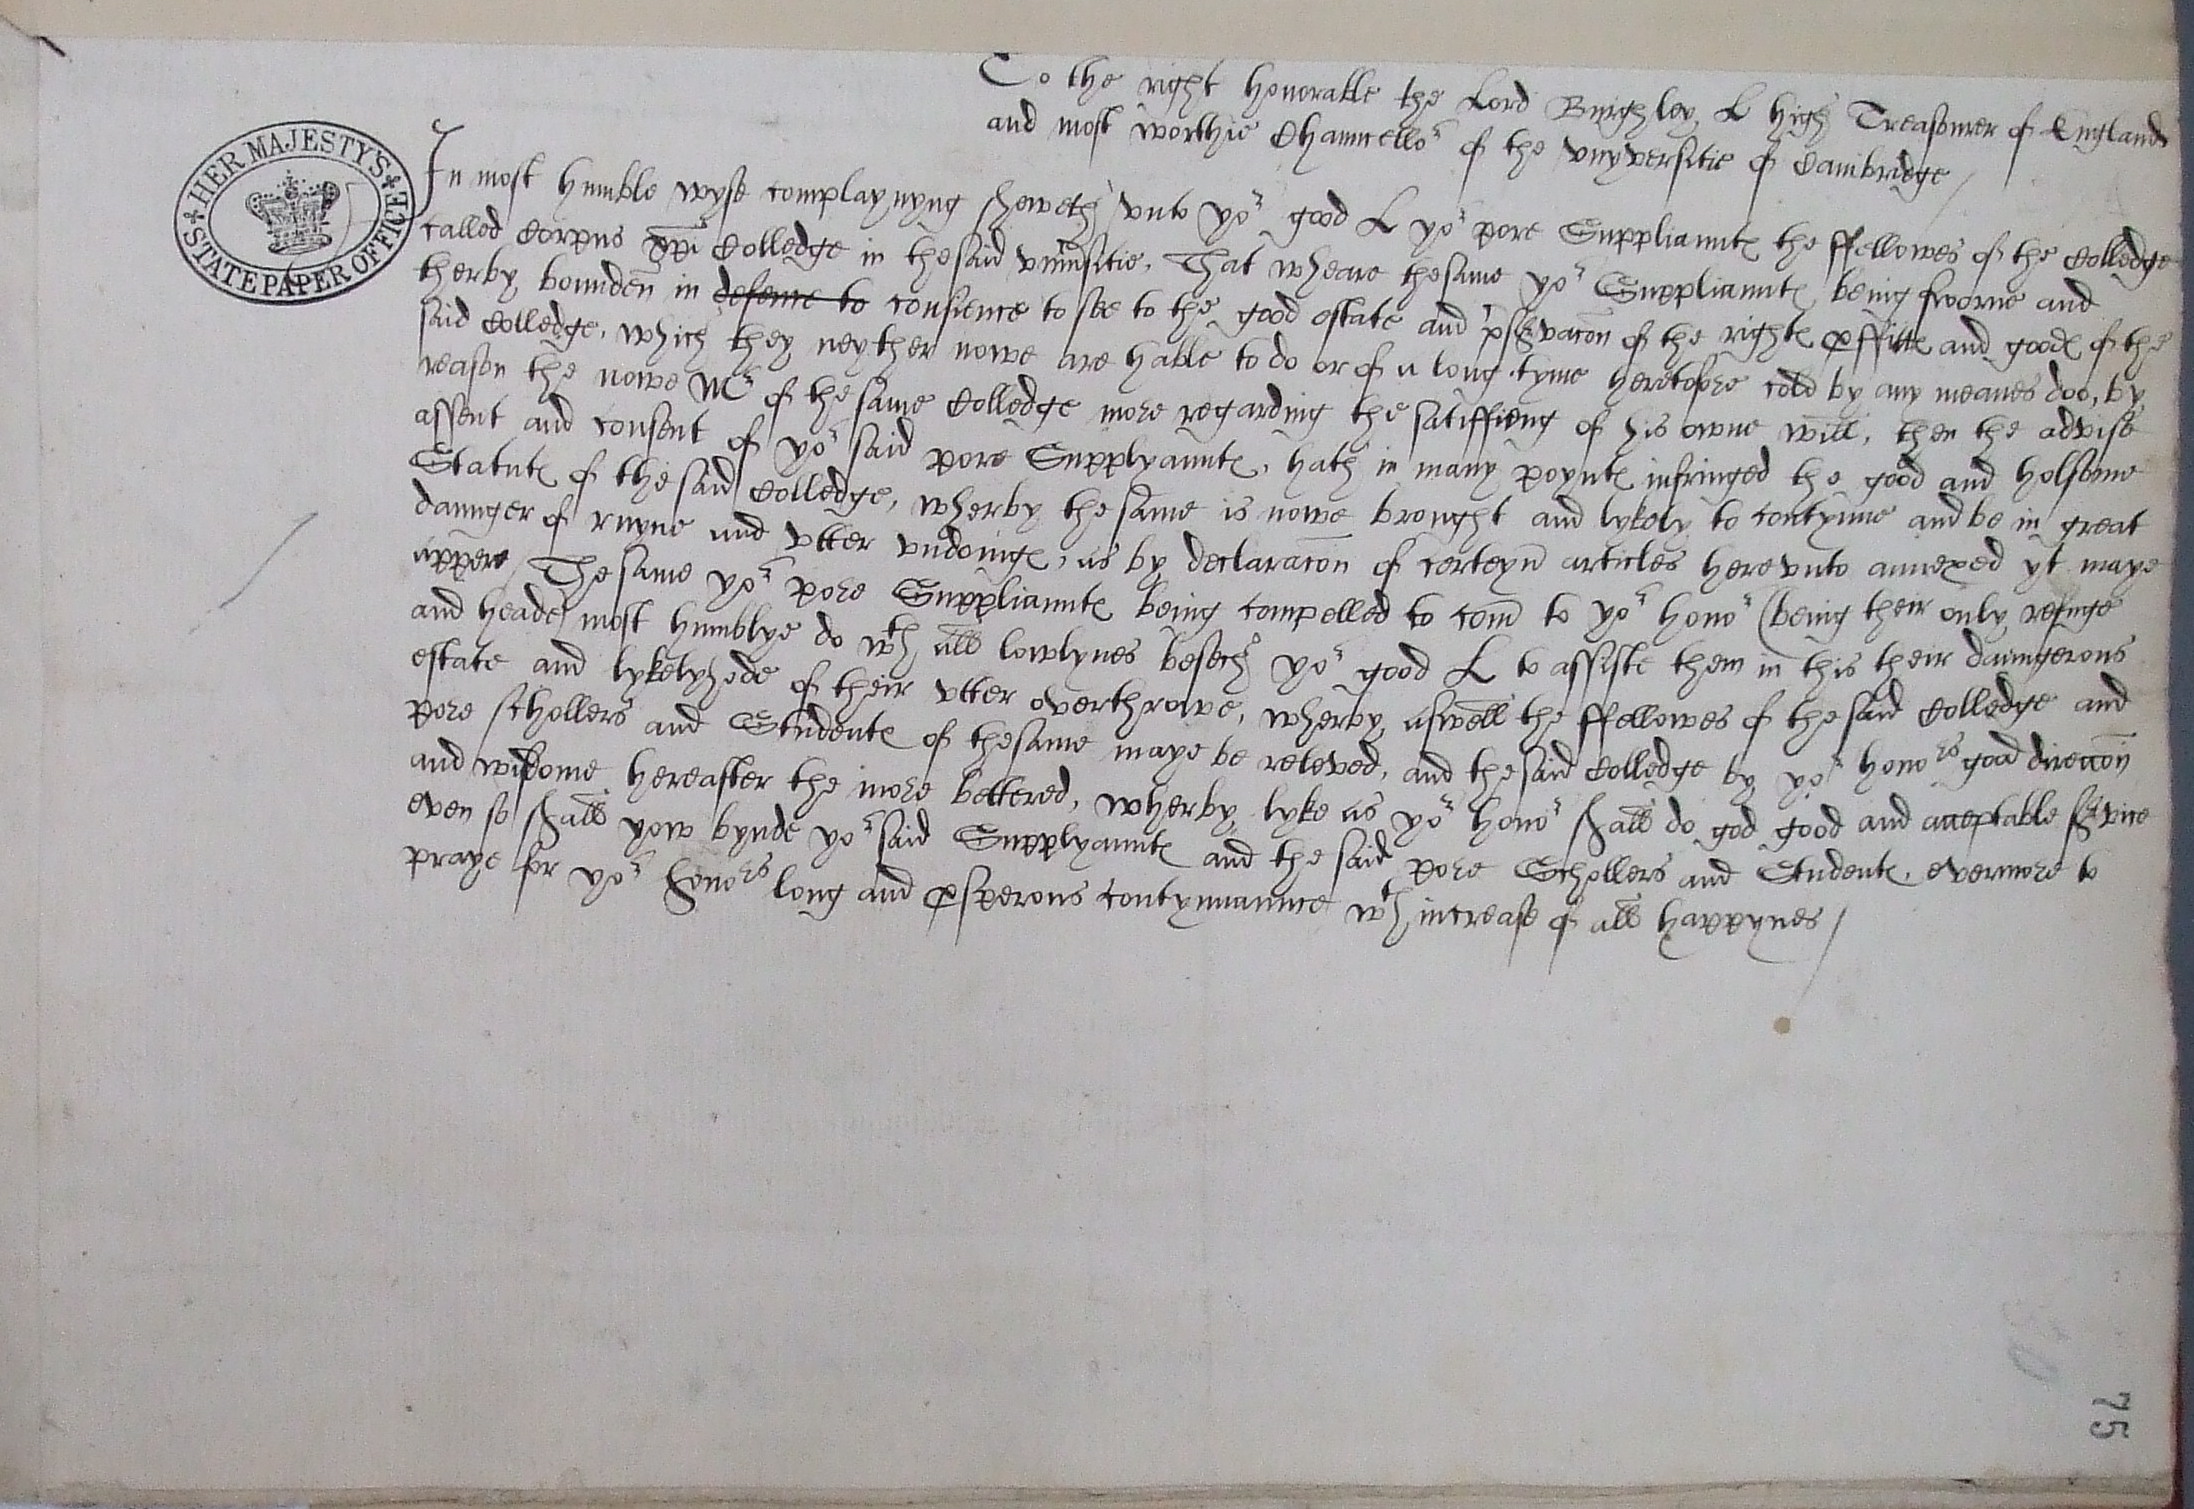 To the right honorable the Lord Burghley, L high Treasourer of England
and most worthie Chauncellor of the vnyversitie of Cambridge /
In most humble wyse complaynyng sheweth vnto yor good L yor pore Suppliauntes the ffellowes of the Colledge
called Corpus xpi Colledge in thesaid vniusitie. That wheare thesame yor Suppliauntes being sworne and
therby bounden in defence to consience to see to the good estate and pseruacon of the rightes pffittes and goodes of the
said Colledge, which they neyther nowe are hable to do or of a long tyme heretofore cold by any meanes doo, by
reason the nowe Mr of thesame Colledge more regarding the satiffieng of his owne will, then the advise
assent and consent of yor said pore Supplyauntes, hath in many poyntes infringed the good and holsome
Statutes of thesaid Colledge, wherby thesame is nowe brought and lykely to contynue and be in great
daunger of ruyne and vtter vndoinge, as by declaracon of certeyn articles herevnto annexed yt maye
appere / The same yor pore Suppliauntes being compelled to com to yor honor (being their only refuge
and heade) most humblye do wth all lowlynes besech yor good L to assiste them in this their daungerous
estate and lykelyhode of their vtter overthrowe, wherby aswell the ffellowes of thesaid Colledge and
pore schollers and Studentes of thesame maye be releved, and thesaid Colledge by yor honors good direccon
and wisdome hereafter the more bettered, wherby lyke as yor honor shall do god good and acceptable service
even so shall yow bynde yor said Supplyauntes and the said pore Schollers and Studentes, evermore to
praye for yor honors long and psperous contynuaunce wth increase of all happynes /
HER MAJESTY'S
STATE PAPER OFFICE
75